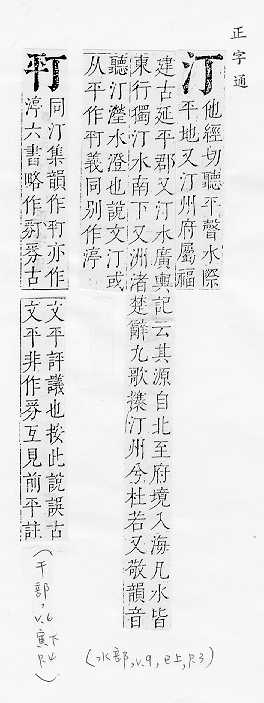 正字通
汀
他經切聽平聲水際
平地又汀州府屬福
建古延平郡又汀水廣輿記云其源自北至府境入海凡水皆
東行獨汀水南下又洲渚楚辭九歌搴汀州兮杜若又敬韻音
聽汀瀅水澄也說文汀或
从平作義同別作渟
(水部,v.9,巳上,p.3)
同汀集韻作亦作
渟六書略作古
文平評議也按此說誤古
文平非作互見前平註
(干部,v.6
寅下
p.4)